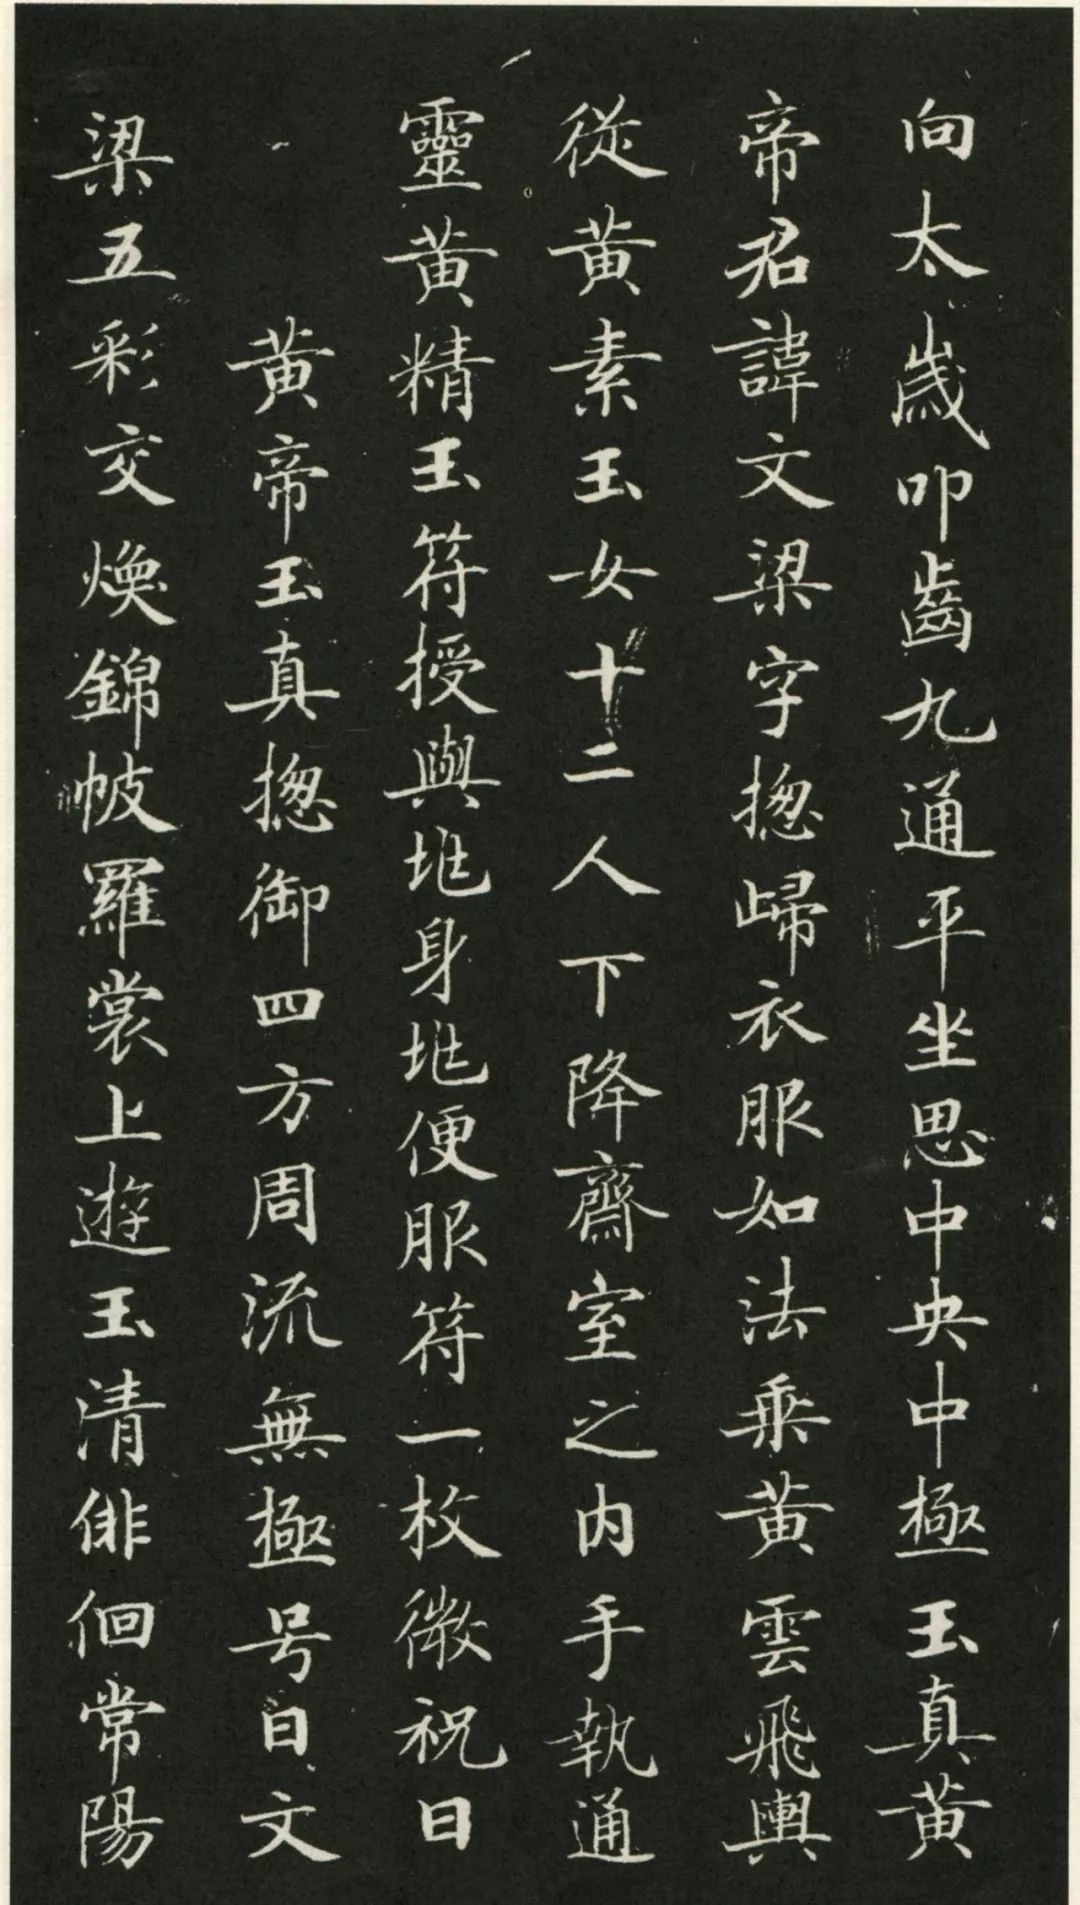 向太歲叩齒九通平坐思中央中極玉真黄
帝君諱文梁字揔歸衣服如法乘黄雲飛輿
從黄素玉女十二人下降齋室之内手執通
靈黄精玉符授與兆身兆便服符一枚微祝曰
黄帝玉真揔御四方周流無極号曰文
梁五彩交煥錦帔羅裳上遊玉清俳佪常陽